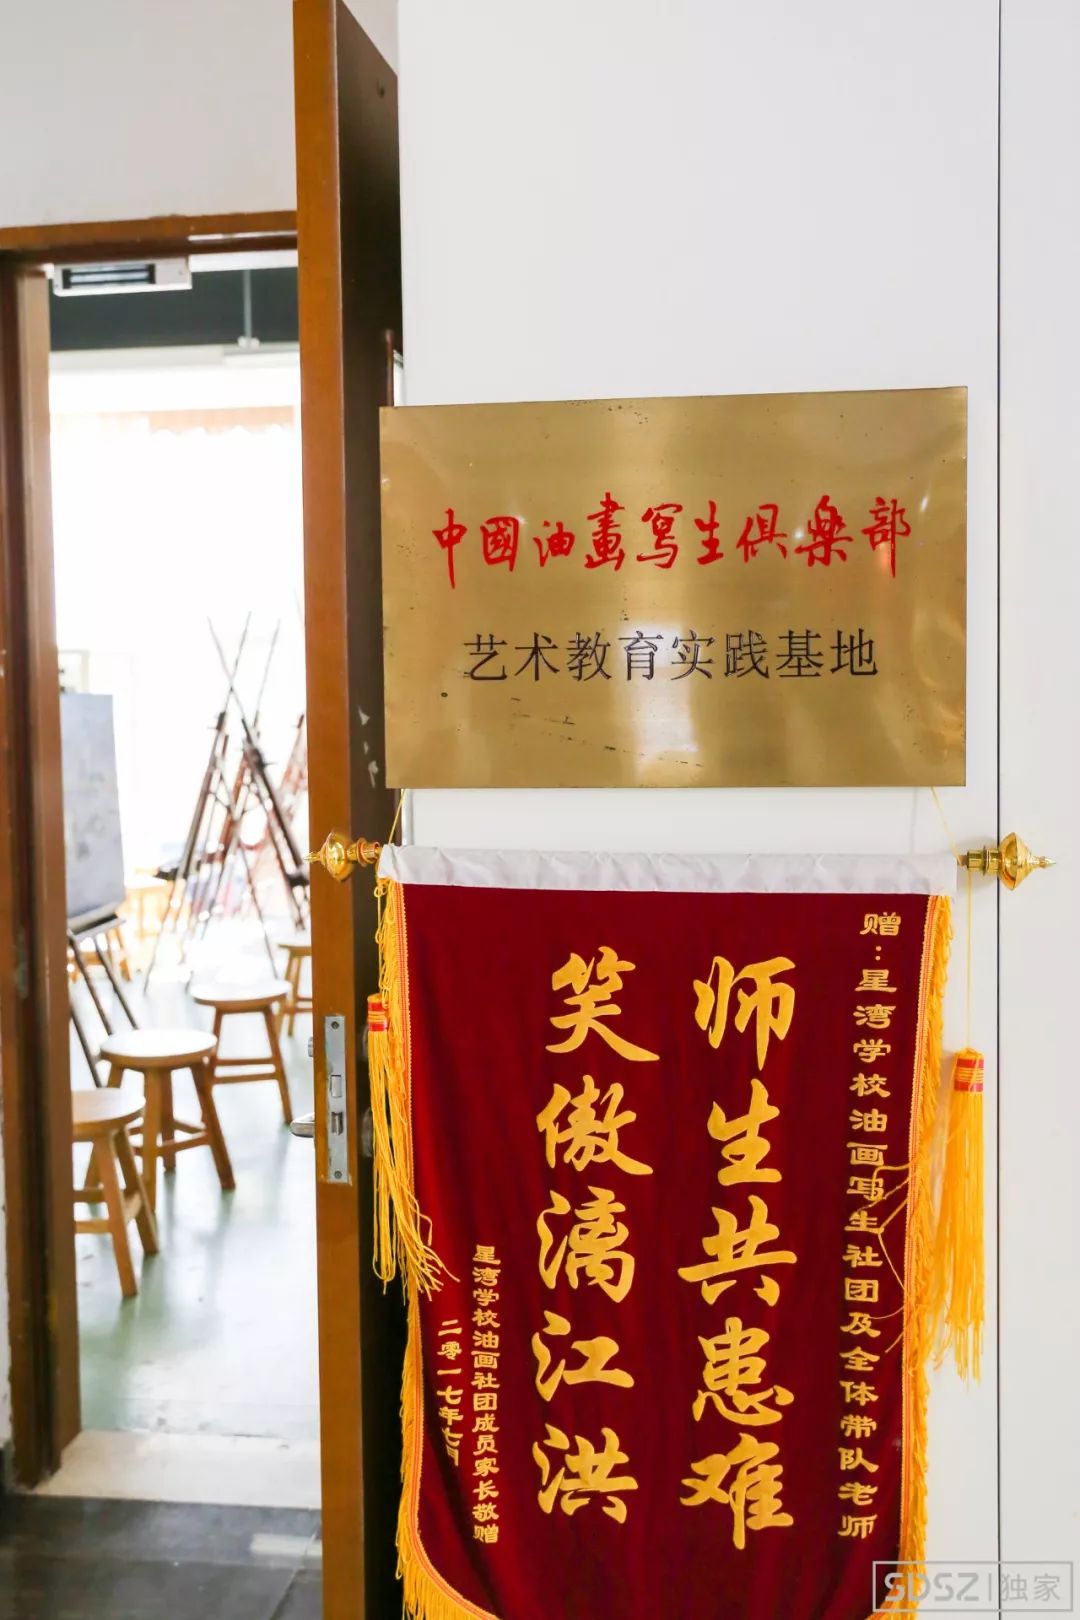 中國油畫寫生俱樂部
艺术教育实践基地
赠：星湾学校油画写生社团及全体带队老师
师生共患难
笑傲漓江洪
星湾学校油画社团成员家长敬赠
二零一七年七月
SDSZ|独家